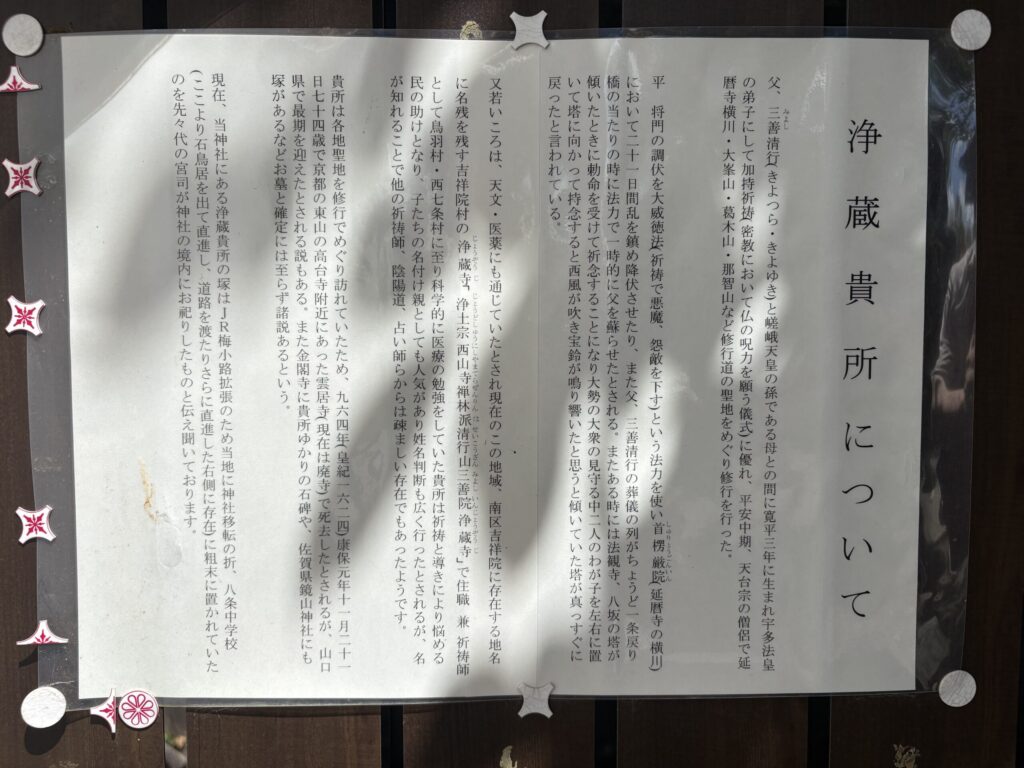 浄蔵貴所について
父、三善清行(きよつら・きよゆき)と嵯峨天皇の孫である母との間に寛平三年に生まれ宇多法皇
の弟子にして加持祈祷(密教において仏の呪力を願う儀式)に優れ、平安中期、天台宗の僧侶で延
暦寺横川・大峯山・葛木山・那智山など修行道の聖地をめぐり修行を行った。
平 将門の調伏を大威徳法(祈祷で悪魔、怨敵を下す)という法力を使い首楞厳院(延暦寺の横川)
において二十一日間乱を鎮め降伏させたり、また父、三善清行の葬儀の列がちょうど一条戻り
橋の当たりの時に法力で一時的に父を蘇らせたとされる。またある時には法観寺、八坂の塔が
傾いたときに勅命を受けて祈念することになり大勢の大衆の見守る中二人のわが子を左右に置
いて塔に向かって持念すると西風が吹き宝鈴が鳴り響いたと思うと傾いていた塔が真っすぐに
戻ったと言われている。
又若いころは、天文・医薬にも通じていたとされ現在のこの地域、南区吉祥院に存在する地名
に名残を残す吉祥院村の「浄蔵寺」、浄土宗 西山寺禅林派清行山三善院浄蔵寺」で住職 兼 祈祷師
として鳥羽村・西七条村に至り科学的に医療の勉強をしていた貴所は祈祷と導きにより悩める
民の助けとなり、子たちの名付け親としても人気があり姓名判断も広く行ったとされるが、名
が知れることで他の祈祷師、陰陽道、占い師らからは疎ましい存在でもあったようです。
貴所は各地聖地を修行でめぐり訪れていたため、九六四年(皇紀一六二四)康保元年十一月二十一
日七十四歳で京都の東山の高台寺附近にあった雲居寺(現在は廃寺)で死去したとされるが、山口
県で最期を迎えたとされる説もある。また金閣寺に貴所ゆかりの石碑や、佐賀県鏡山神社にも
塚があるなどお墓と確定には至らず諸説あるという。
現在、当神社にある浄蔵貴所の塚はJR梅小路拡張のため当地に神社移転の折、八条中学校
(ここより石鳥居を出て直進し、道路を渡たりさらに直進した右側に存在)に粗末に置かれていた
のを先々代の宮司が神社の境内にお祀りしたものと伝え聞いております。